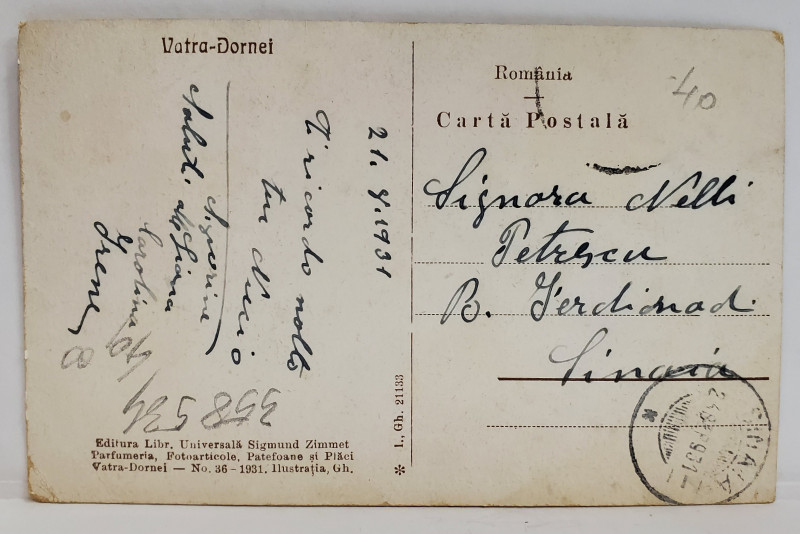 Vatra-Dornei
21. 8. 1931
Ti ricordo molto
tuo Nucio
Saluti alle Signorine
Liana
Carolina
Irene
358534
Editura Libr. Universală Sigmund Zimmet
Parfumeria, Fotoarticole, Patefoane și Plăci
Vatra-Dornei — No. 36 - 1931. Ilustrația, Gh.
* I., Gh. 21133
România
Cartă Postală
40
Signora Nelli
Petrescu
B. Ferdinad
Sinaia
SINAIA